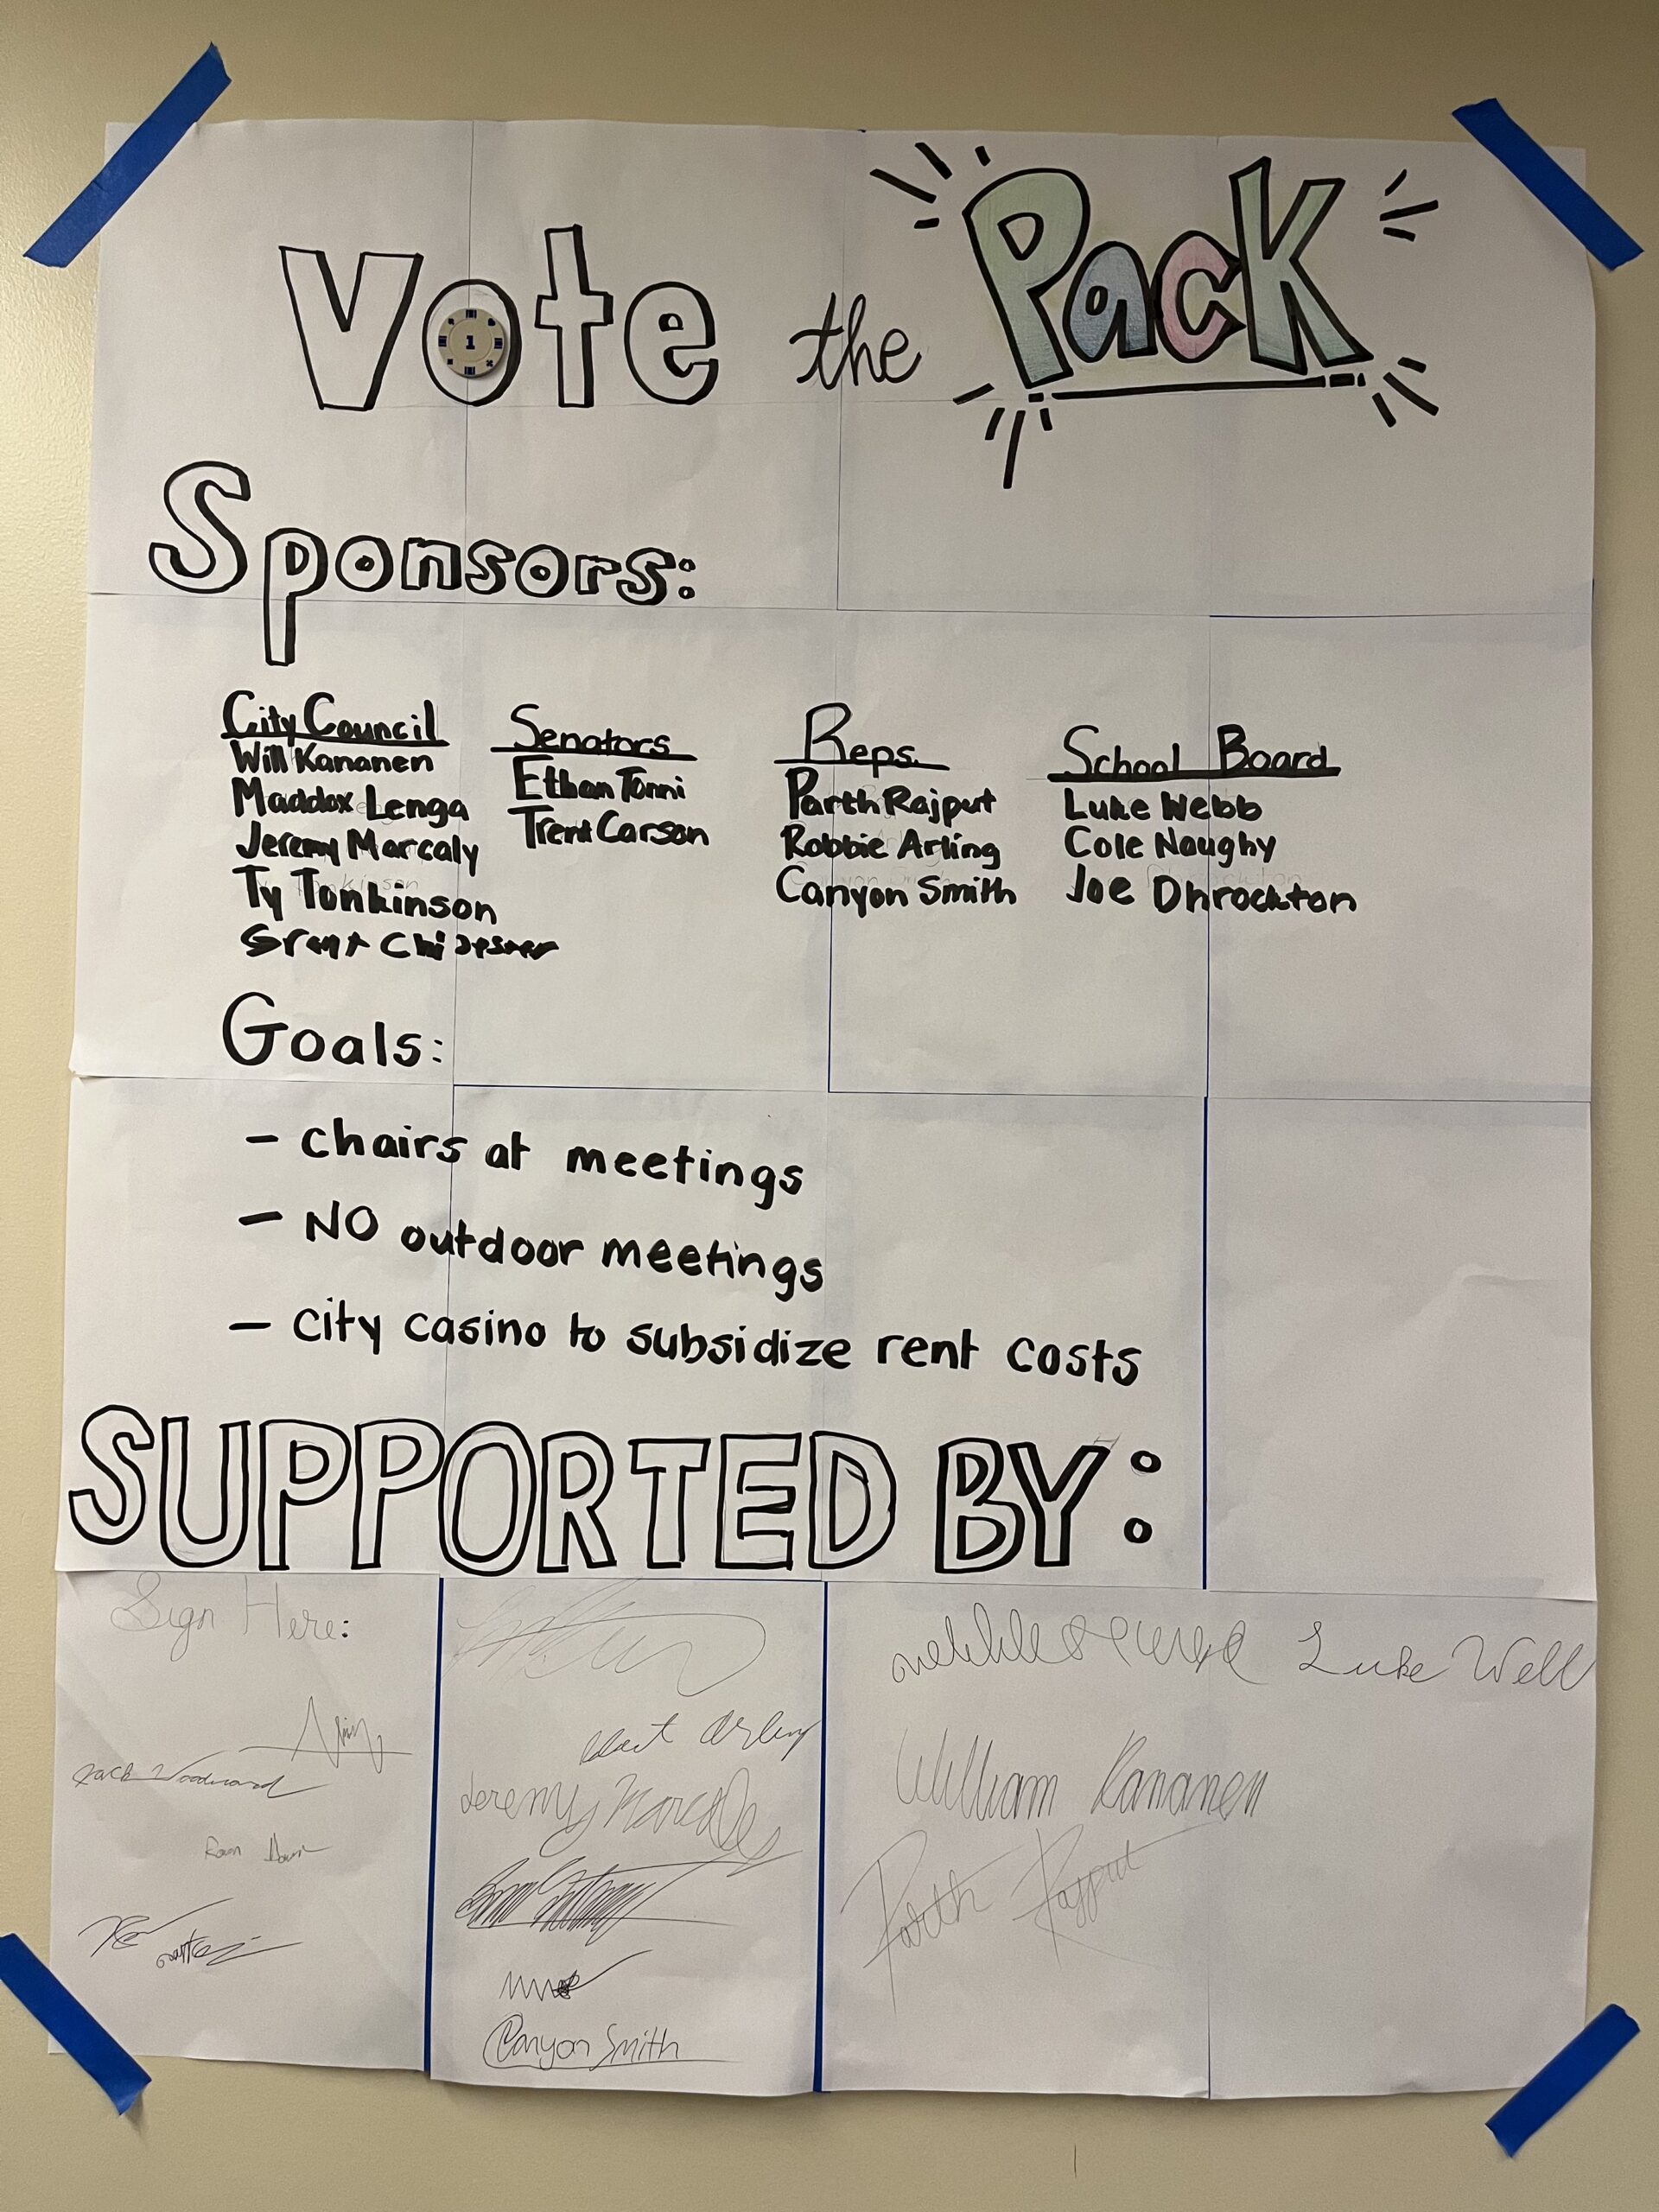 Vote the Pack
1
Sponsors:
City Council
Will Kananen
Maddox Lenga
Jeremy Marcaly
Ty Tonkinson
Grant
Senators
Ethan Tonni
Trent Carson
Reps.
Parth Rajput
Robbie Arling
Canyon Smith
School Board
Luke Webb
Cole Naughy
Joe Dhrockton
Goals:
- chairs at meetings
- NO outdoor meetings
- city casino to subsidize rent costs
SUPPORTED BY:
Sign Here:
Zack Woodward
Jeremy
Canyon Smith
Luke Well
William Kananen
Parth Rajput